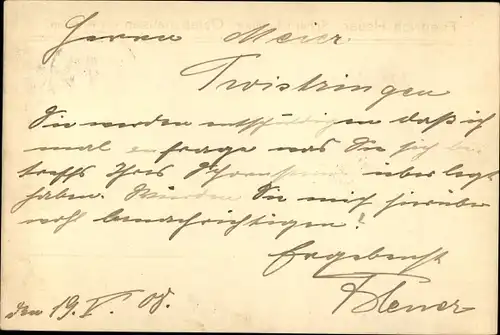 Herrn Meier
Twistringen
Sie werden entschuldigen daß ich
mal anfrage was Sie sich be-
treffs Ihres überlegt
haben. Würden Sie mich hierüber
wohl benachrichtigen?
Ergebenst
den 19. V. 08.